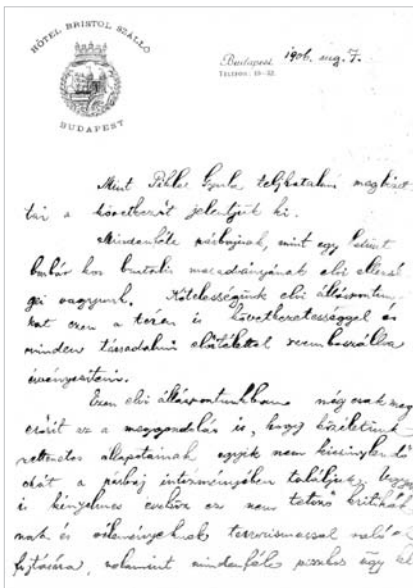 HÔTEL BRISTOL SZÁLLÓ
BUDAPEST
Budapest, 1906. aug. 7.
TELEFON: 19–32.
Mint Pikler Gyula teljhatalmú megbizot-
tai a következőt jelentjük ki.
Mindenféle párbajnak, mint egy letünt
barbár kor brutalis maradványának elvi ellensé-
gei vagyunk. Kötelességünk elvi álláspontun-
kat ezen a téren is következetességgel és
minden társadalmi előítélettel szembeszállva
érvényesíteni.
Ezen elvi álláspontunkban még csak meg
erősít az a meggondolás is, hogy közéletünk
rettenetes állapotainak egyik nem kicsinylendő
okát a párbaj intézményében találjuk.
is kényelmes eszköz ez nem tetsző kritikák-
nak és véleményeknek terrorismussal való el
fojtására, valamint mindenféle piszkos ügy